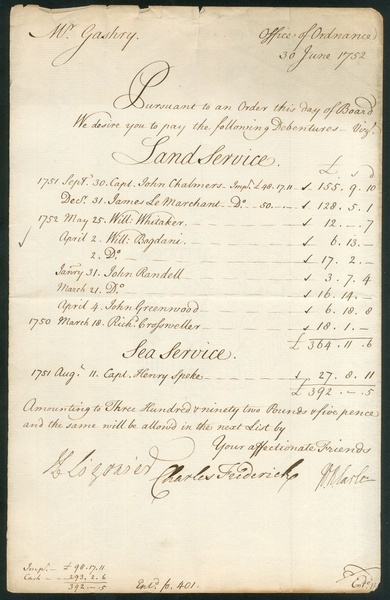 Mr. Gashry.
Office of Ordnance
30 June 1752
Pursuant to an Order this day of Board
We desire you to pay the following Debentures Vizt.
Land Service.
£ s d
1751 Septr. 30. Capt. John Chalmers Impt. £48.17.11 £ 155. 9. 10
Decr. 31. James Le Marchant Do. 50. £ 128. 5. 1
1752 May 25. Will: Whitaker £ 12. — . 7
April 2. Will: Bogdani £ 6. 13. —
2. Do. £ 17. 2. —
Janry 31. John Randell £ 3. 7. 4
March 21. Do. £ 16. 14. —
April 4. John Greenwood £ 6. 18. 8
1750 March 18. Richd. Crossweller £ 18. 1. —
£ 364. 11. 6
Sea Service.
1751 Augt. 11. Capt. Henry Speke £ 27. 8. 11
£ 392. — . 5
Amounting to Three Hundred & ninety two Pounds & five pence
and the same will be allowed in the next List by
Your affectionate Friends
Charles Frederick
Impt. £ 98. 17. 11
Cash 293. 2. 6
392. — . 5
Entd. fo. 401.